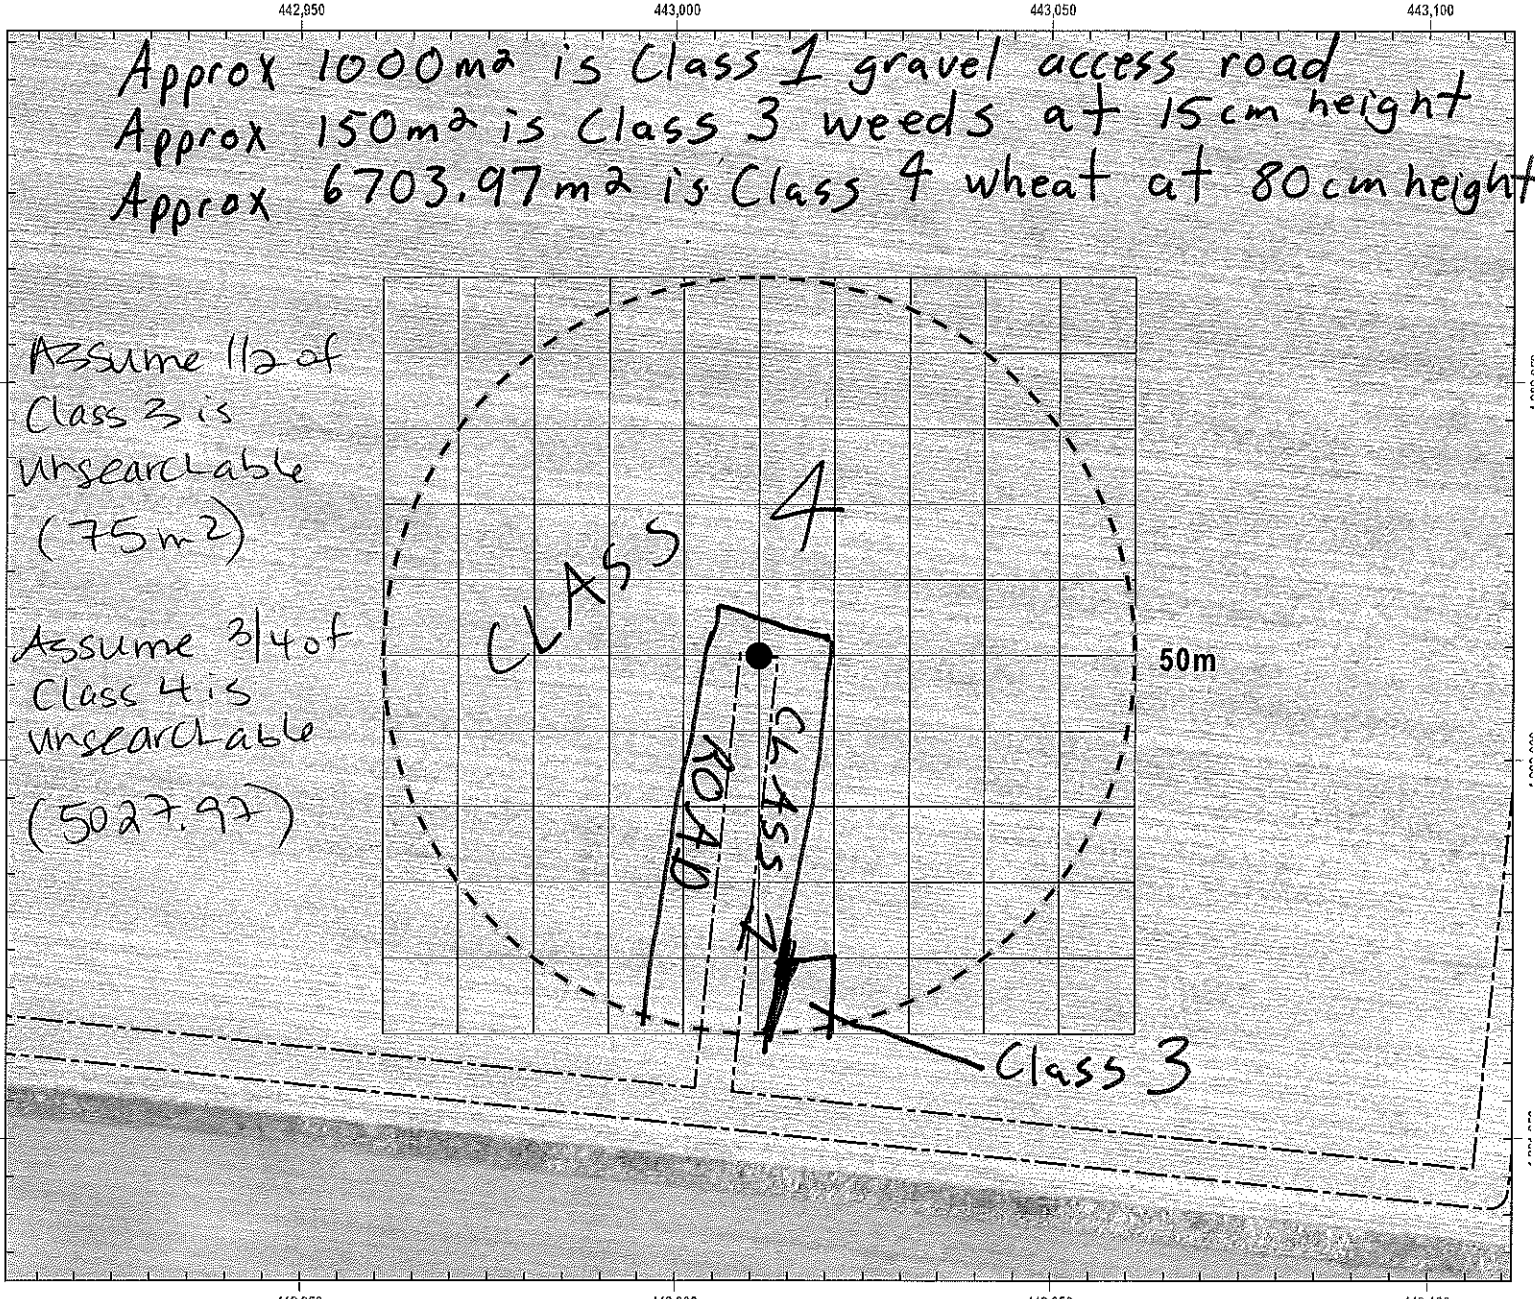 442,950 443,000 443,050 443,100
Approx 1000m² is Class 1 gravel access road
Approx 150m² is Class 3 weeds at 15cm height
Approx 6703.97m² is Class 4 wheat at 80cm height
Assume 1/2 of
Class 3 is
unsearchable
(75m²)
CLASS 4
Assume 3/4 of
Class 4 is
unsearchable
(5027.97)
50m
ROAD
CLASS 1
Class 3